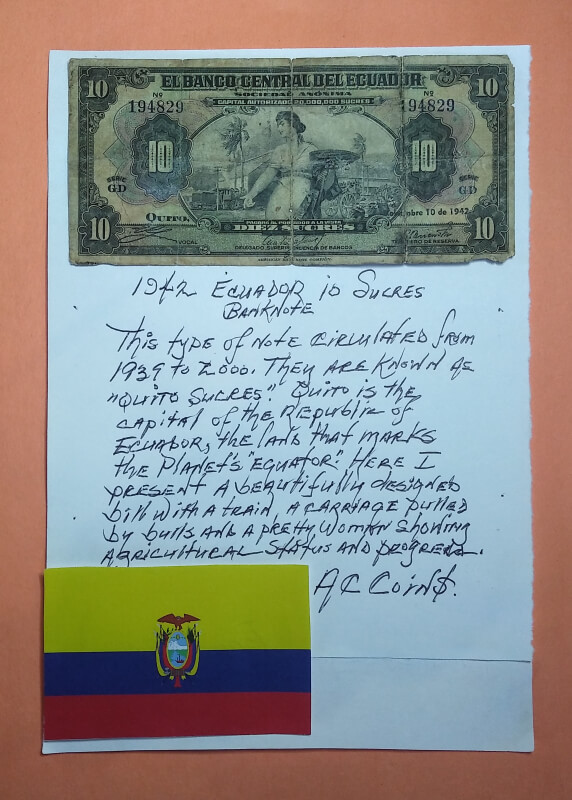 EL BANCO CENTRAL DEL ECUADOR
SOCIEDAD ANÓNIMA
CAPITAL AUTORIZADO 20,000,000 SUCRES
10
10
Nº
194829
Nº
194829
10
10
SERIE
GD
SERIE
GD
QUITO,
bre 10 de 1942
PAGARÁ AL PORTADOR A LA VISTA
DIEZ SUCRES
10
10
VOCAL
DELEGADO SUPERINTENDENCIA DE BANCOS
DE RESERVA
AMERICAN BANK NOTE COMPANY
1942 ECUADOR 10 SUCRES
BANKNOTE
This type of note circulated from
1939 to 2000. They are known as
"QUITO SUCRES". Quito is the
capital of the Republic of
ECUADOR, the land that marks
the Planet's "EQUATOR". Here I
present a beautifully designed
bill with a train, a carriage pulled
by bulls and a pretty woman showing
Agricultural status and progress.
AC Coin$.